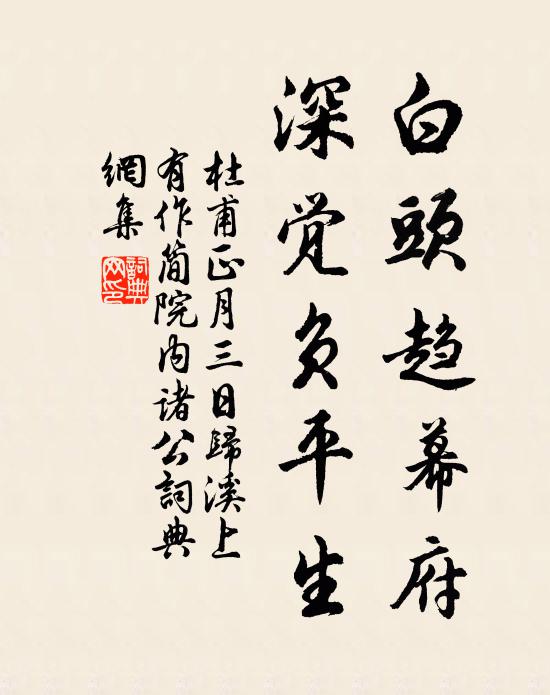 白頭趋幕府
深覚負平生
杜甫正月三日歸溪上
有作简院内诸公詞典
網集
詞典
网印